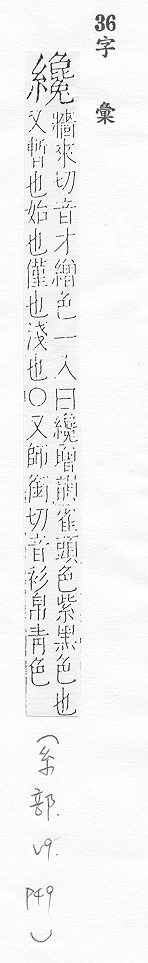 36字彙
纔
牆來切音才繒色一入曰纔增韻雀頭色紫黑色也
又暫也始也僅也淺也○又師銜切音衫帛青色
(糸部. v9. P49)